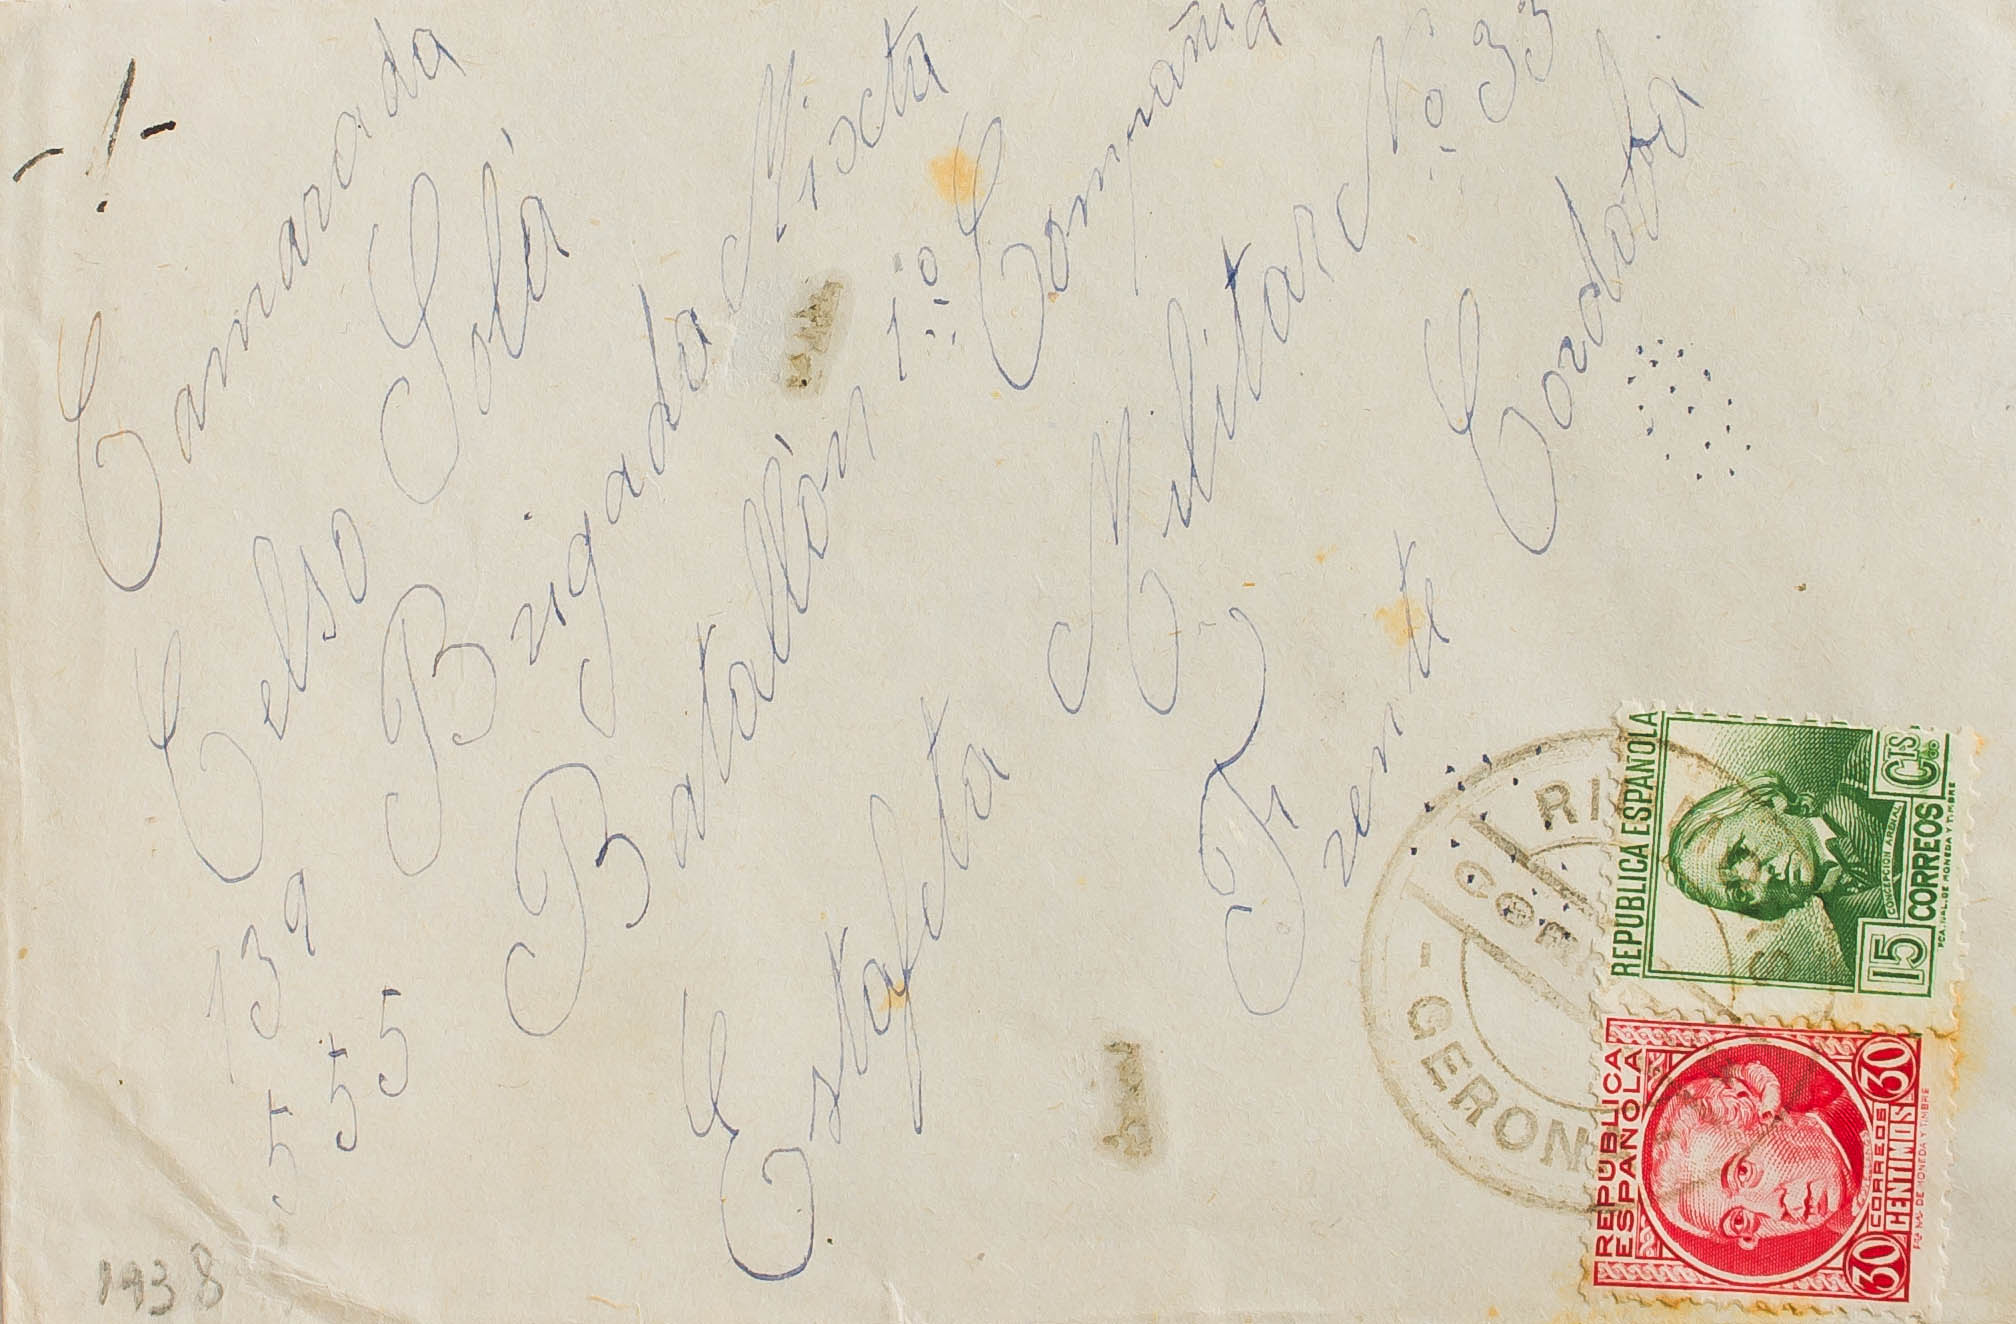 -/-
Camarada
Celso Solá
139 Brigada Mixta
555 Batallón 1º Compañia
Estafeta Militar Nº 33
Frente Cordoba
1938
- GERONA
REPUBLICA ESPAÑOLA
CONCEPCION ARENAL
15 CORREOS CTS
FCA. NAL. DE MONEDA Y TIMBRE
REPÚBLICA
ESPAÑOLA
30 CORREOS 30
CENTIMOS
FCA NAL DE MONEDA Y TIMBRE